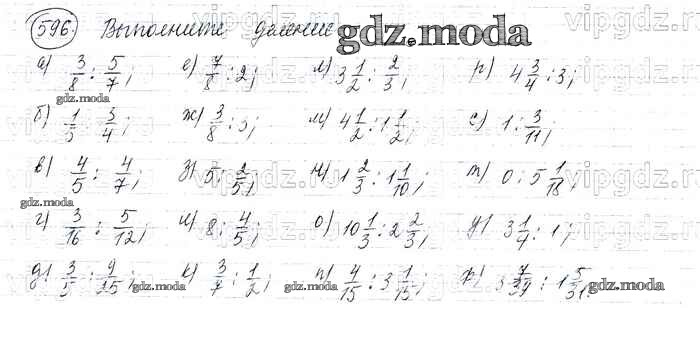 596. Выполните деление gdz.moda
а) 3/8 : 5/7; е) 7/8 : 2; л) 3 1/2 : 2/3; р) 4 3/4 : 3;
gdz.moda
б) 1/5 : 3/4; ж) 3/8 : 3; м) 4 1/2 : 1 1/2; с) 1 : 3/11;
в) 4/5 : 4/7; з) 5 : 2/5; н) 1 2/3 : 1 1/10; т) 0 : 5 1/18;
gdz.moda
г) 3/16 : 5/12; и) 8 : 4/5; о) 10 1/3 : 2 2/3; у) 3 1/4 : 1;
д) 3/5 : 9/25; к) 3/7 : 1/2; п) 4/15 : 3 1/15; ф) 3 7/39 : 1 5/31.
gdz.moda gdz.moda gdz.moda
vipgdz.ru